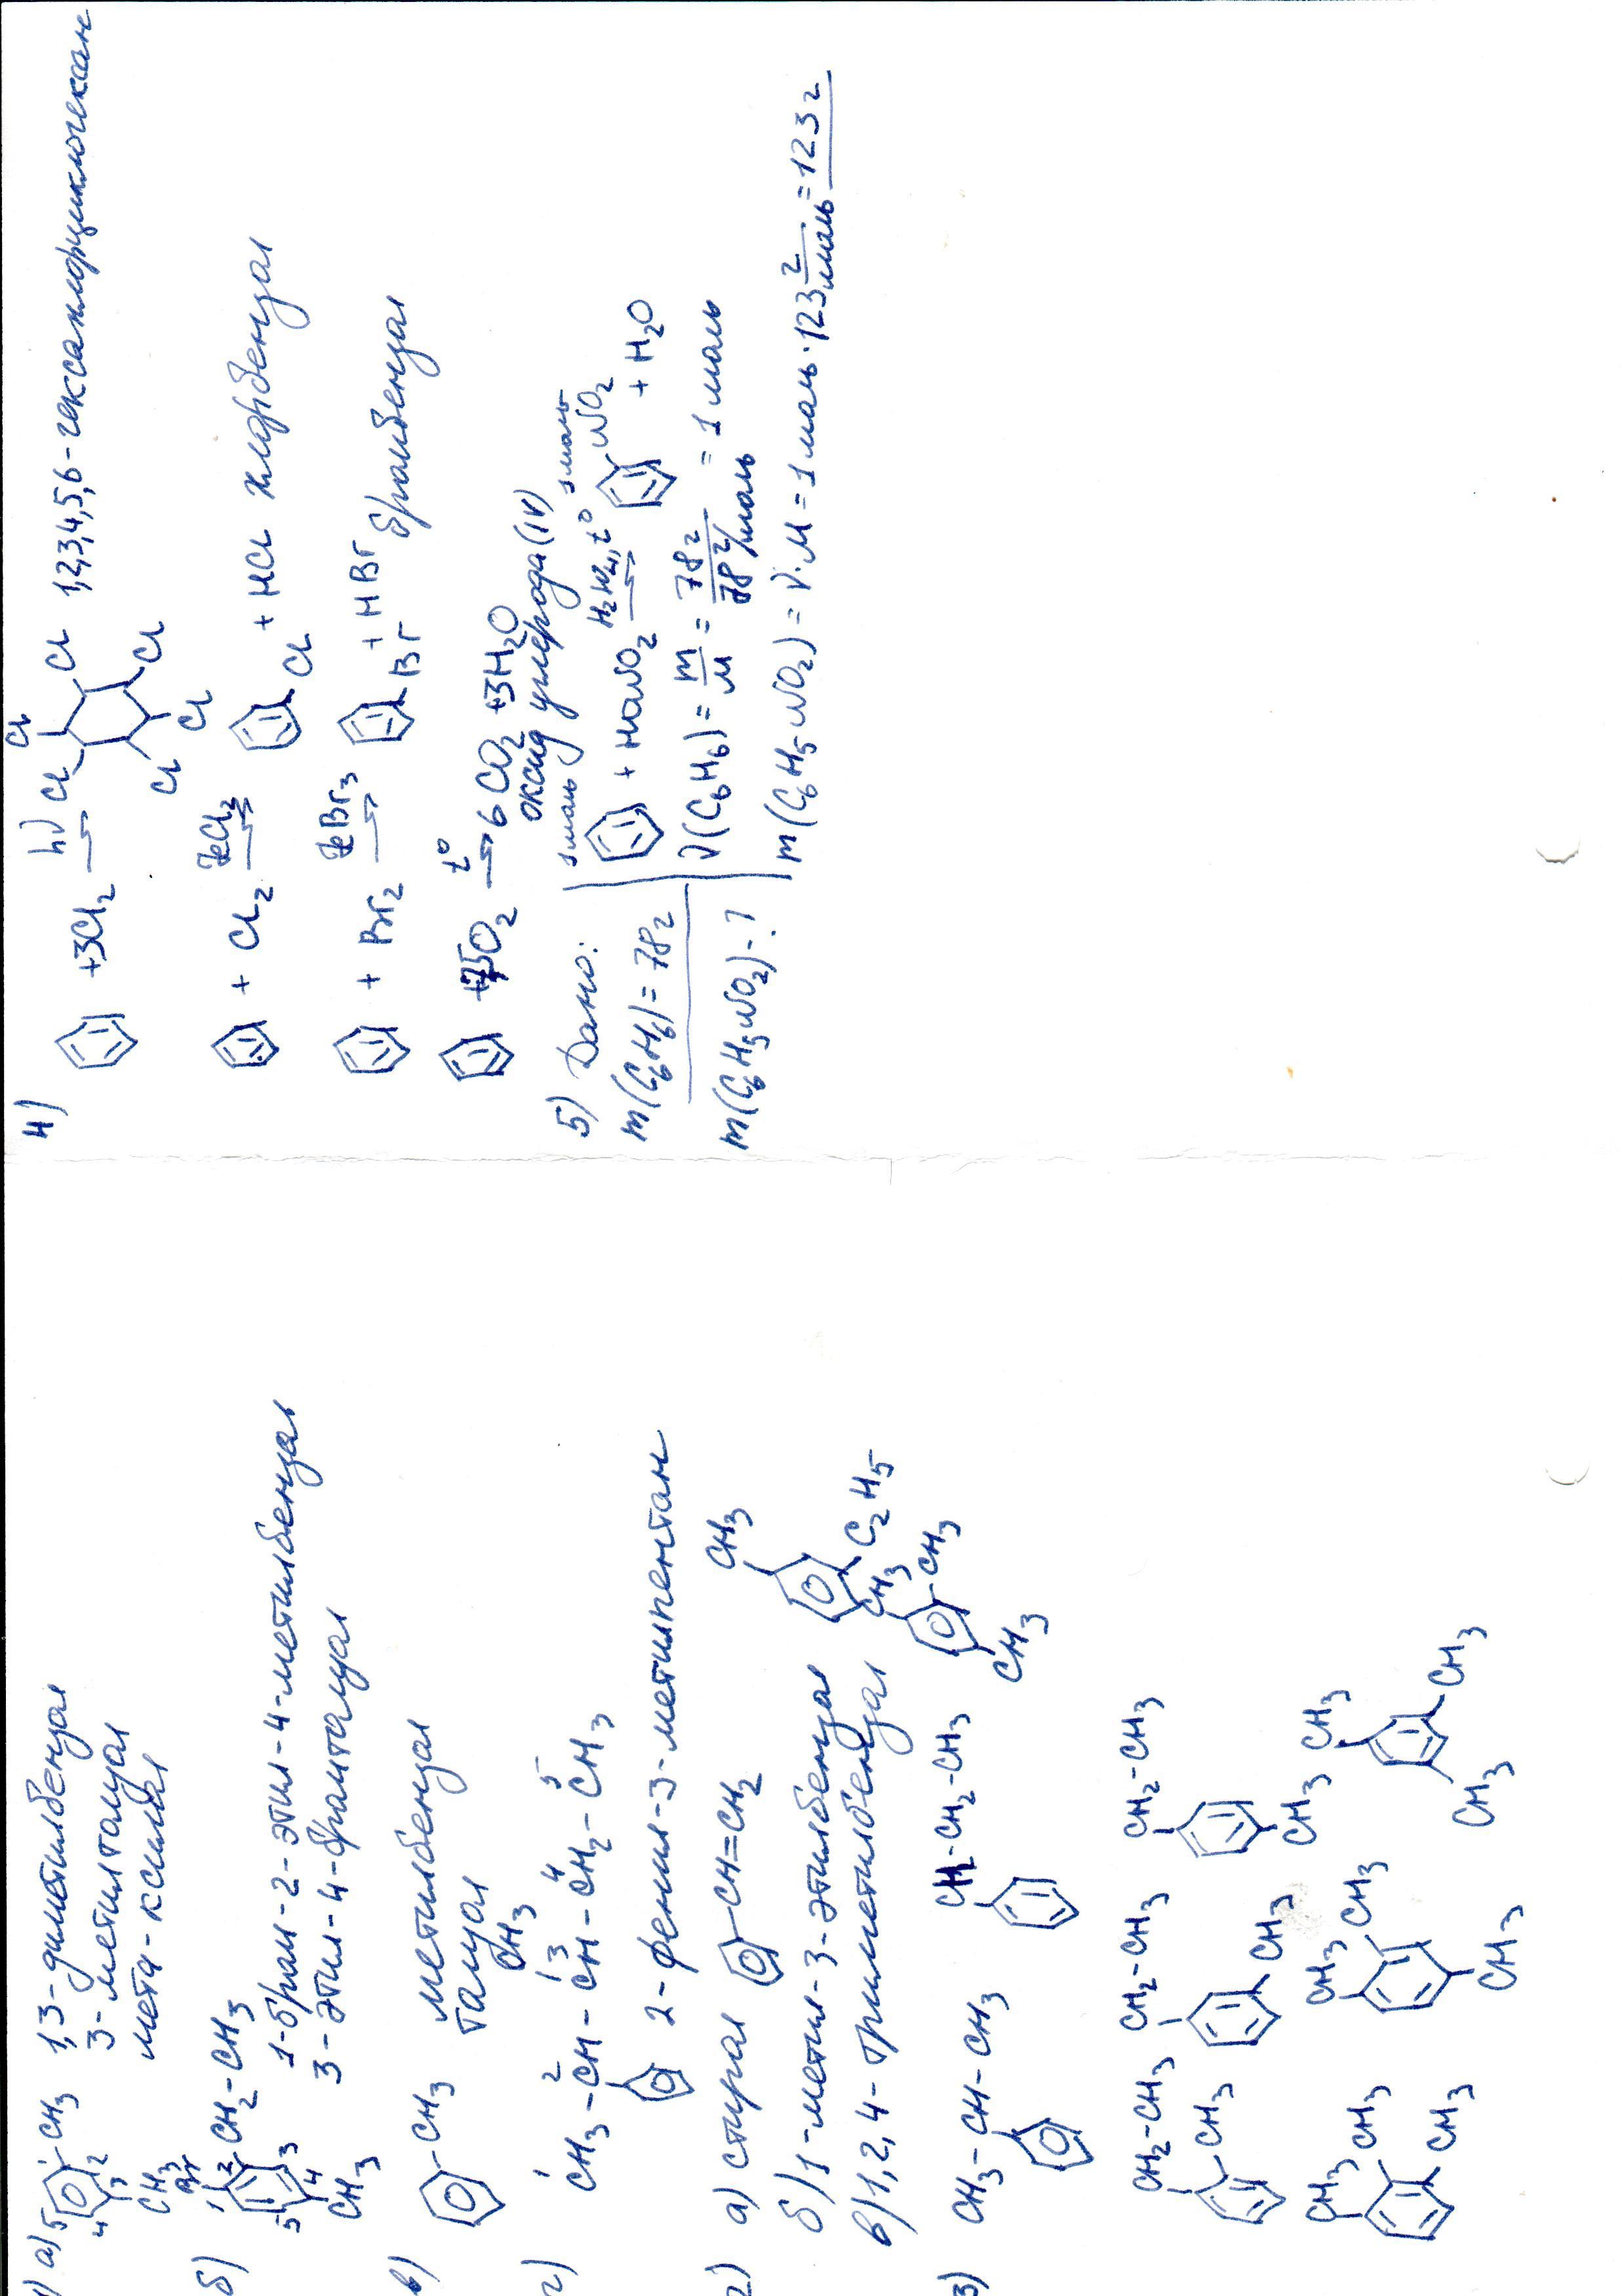 1) а) 5 CH3 1,3-диметилбензол
4 3 2 3-метилтолуол
CH3 мета-ксилол
б) 1 Br 2 CH2-CH3
5 4 3 1-бром-2-этил-4-метилбензол
CH3 3-этил-4-бромтолуол
в) CH3 метилбензол
толуол
CH3
1 2 3 4 5
г) CH3-CH-CH-CH2-CH3
2-фенил-3-метилпентан
2) а) стирол CH=CH2
б) 1-метил-3-этилбензол CH3 C2H5
в) 1,2,4-триметилбензол CH3 CH3 CH3
3) CH3-CH-CH3 CH2-CH2-CH3
CH2-CH3 CH3 CH2-CH3 CH3 CH2-CH3 CH3
CH3 CH3 CH3 CH3 CH3 CH3 CH3 CH3 CH3
4)
+3Cl2 hν → Cl Cl Cl Cl Cl Cl 1,2,3,4,5,6-гексахлорциклогексан
+ Cl2 FeCl3 → Cl + HCl хлорбензол
+ Br2 FeBr3 → Br + HBr бромбензол
+7,5O2 t° → 6CO2 +3H2O
оксид углерода (IV)
5) Дано: 1 моль 1 моль
m(C6H6)=78г + HONO2 H2SO4, t° → NO2 + H2O
ν(C6H6)= m/M = 78г/78г/моль = 1 моль
m(C6H5NO2)-? m(C6H5NO2)=ν·M=1моль·123г/моль=123г